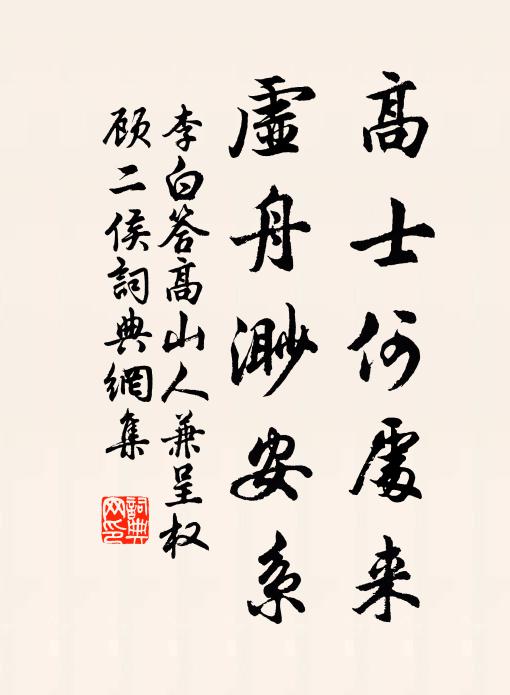 高士何處来
虛舟渺安系
李白答高山人兼呈权
顾二侯詞典網集
詞典网印